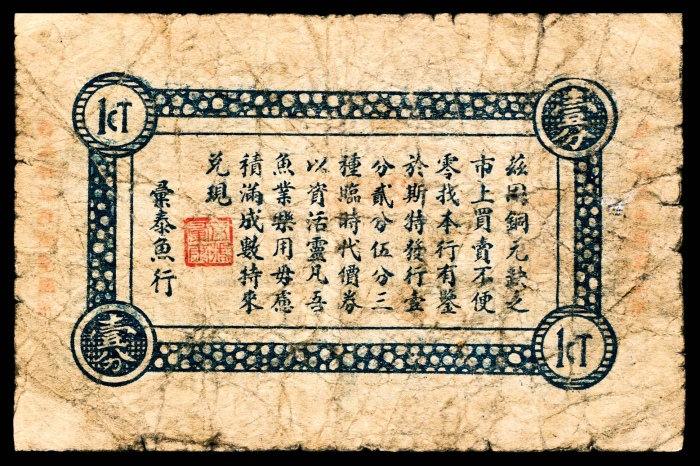 1CT
壹分
茲因銅元缺乏
市上買賣不便
零找本行有鑒
於斯特發行壹
分貳分伍分三
種臨時代價券
以資活靈凡吾
魚業樂用毋慮
積滿成數持來
兌現
彙泰魚行
壹分
1CT